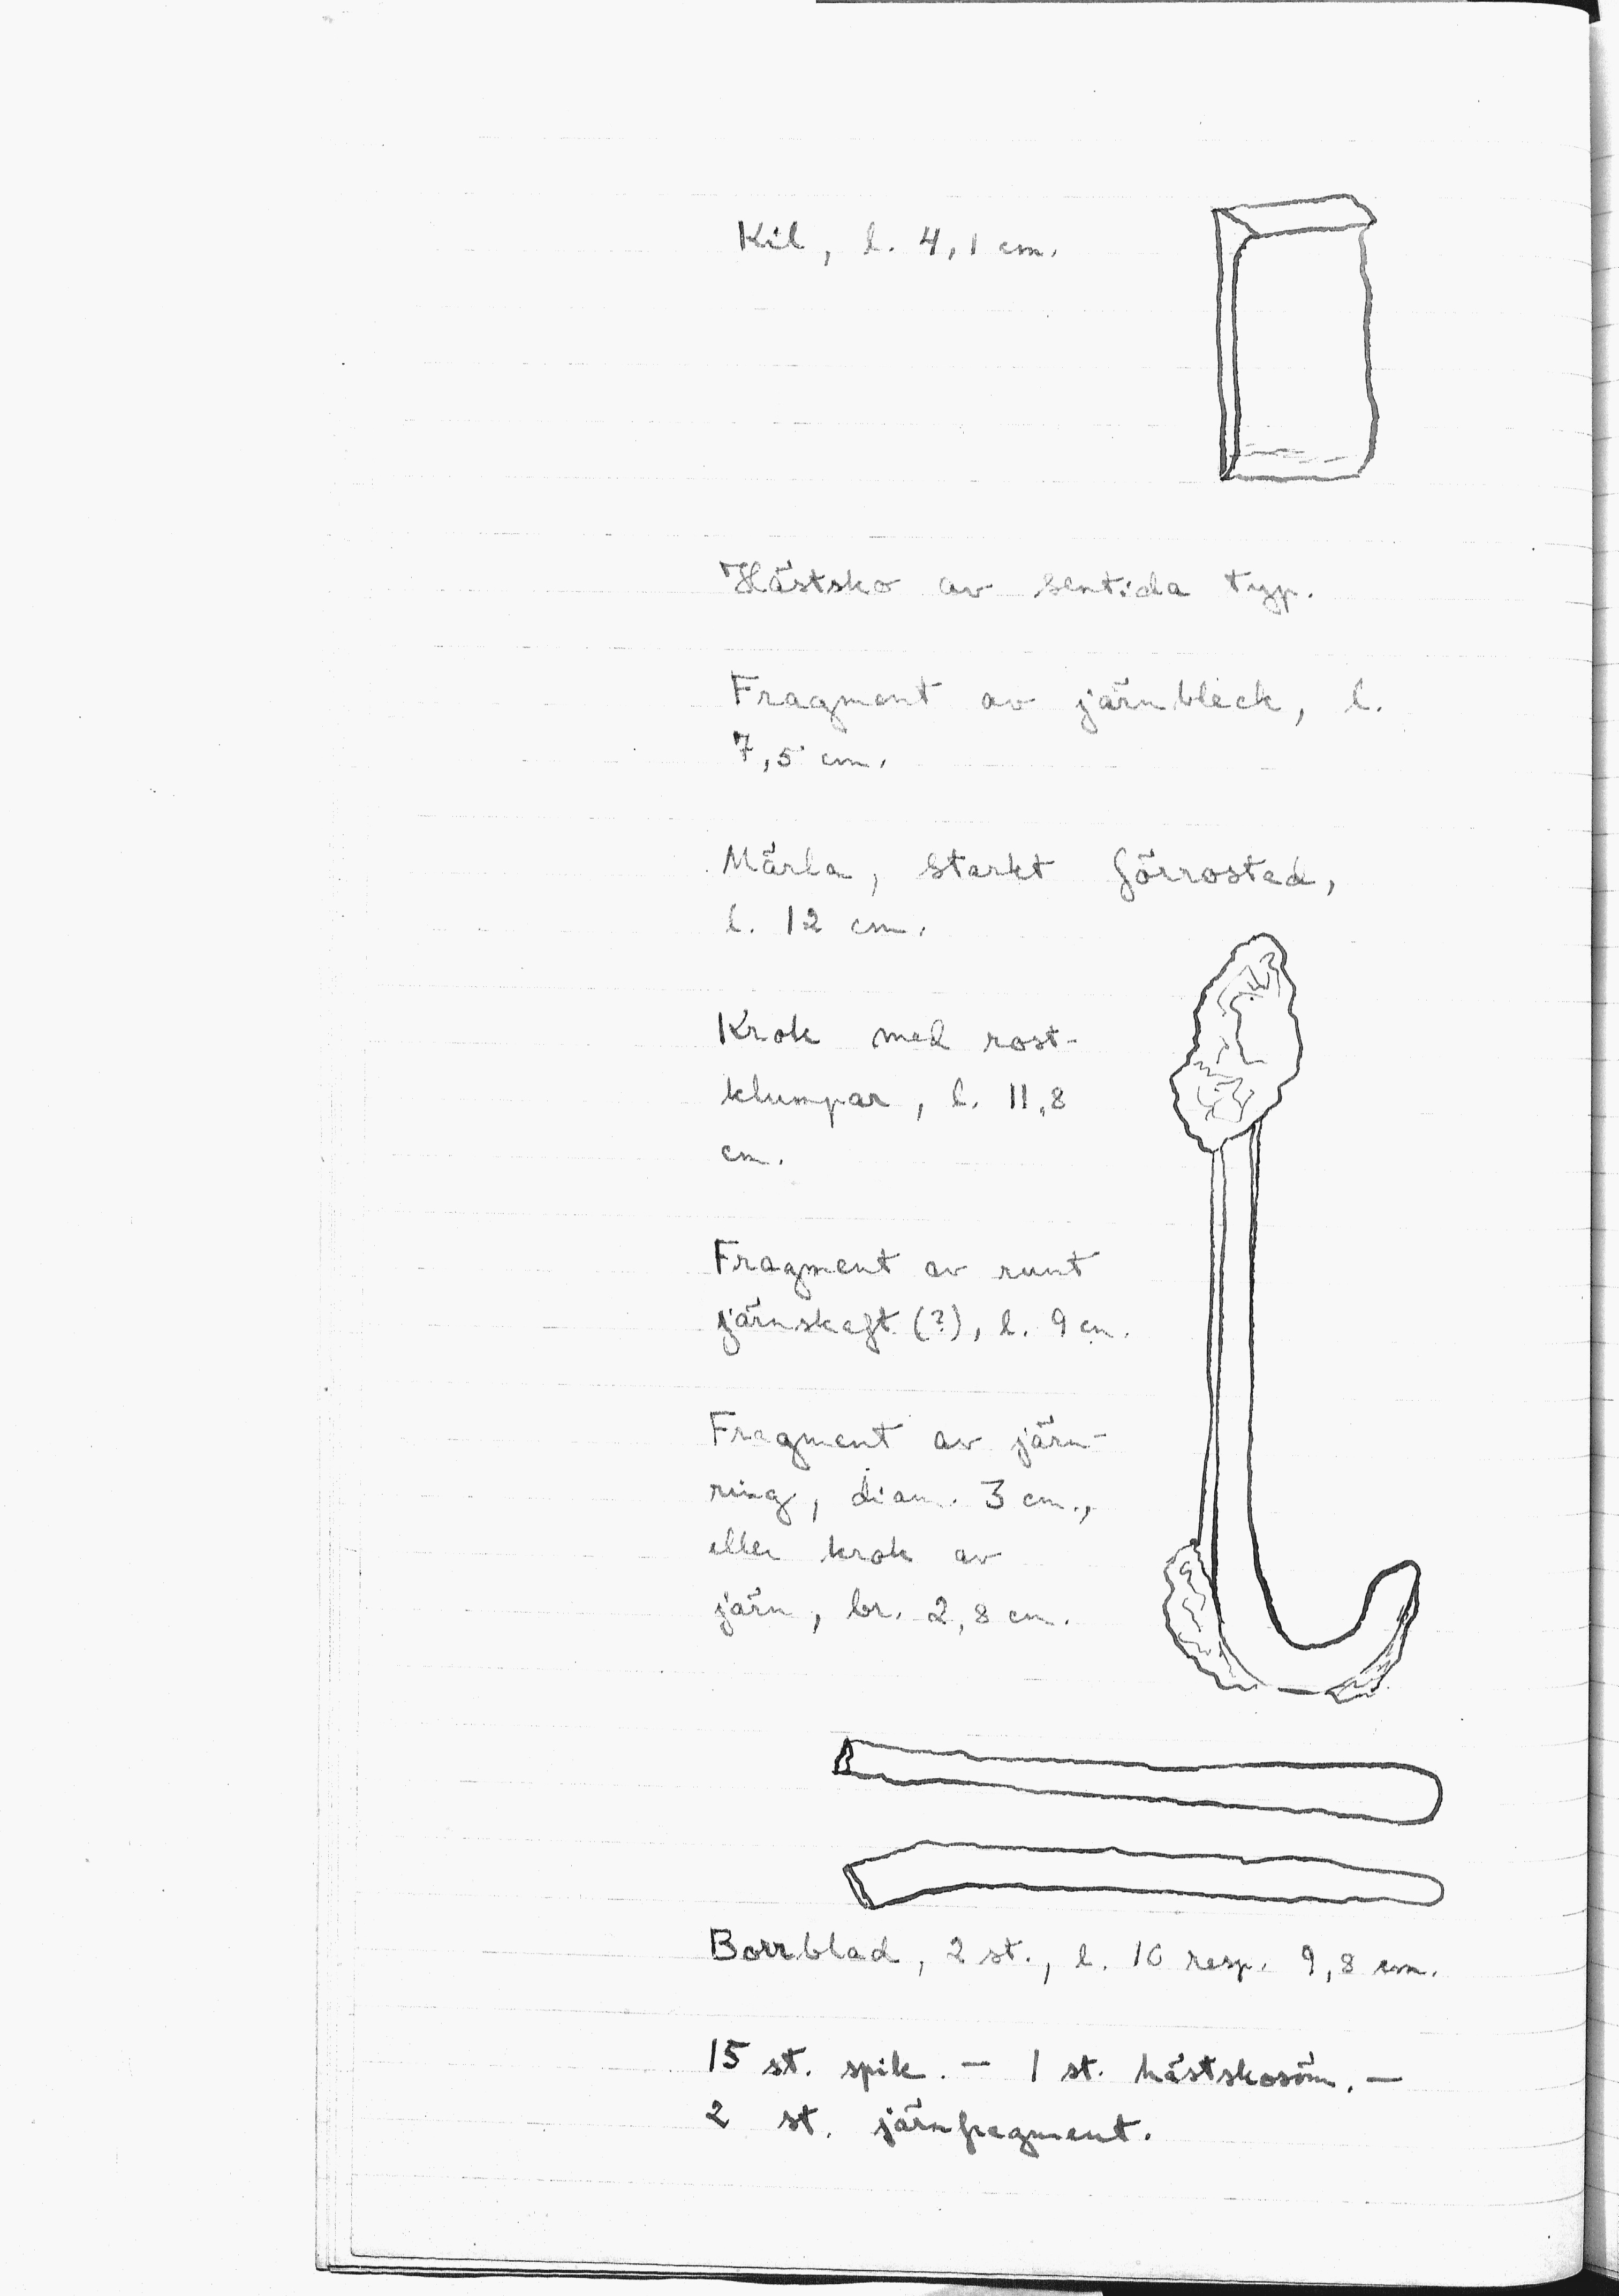 Kil, l. 4,1 cm.
Hästsko av sentida typ.
Fragment av järnbleck, l.
7,5 cm.
Märla, starkt förrostad,
l. 12 cm.
Krok med rost-
klumpar, l. 11,8
cm.
Fragment av runt
järnskaft (?), l. 9 cm.
Fragment av järn-
ring, diam. 3 cm.,
eller krok av
järn, br. 2,8 cm.
Borrblad, 2 st., l. 10 resp. 9,8 cm.
15 st. spik. — 1 st. hästskosöm. —
2 st. järnfragment.